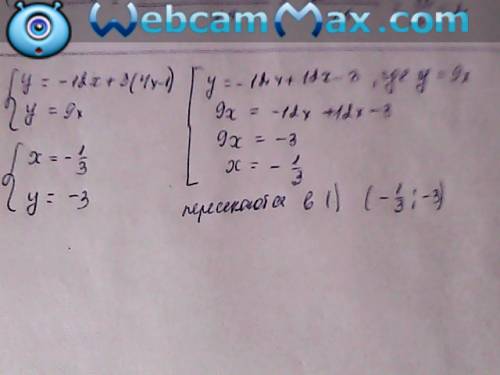 WebcamMax.com
y = -12x + 3(4x-1)
y = 9x
x = -1/3
y = -3
y = -12x + 12x - 3, где y = 9x
9x = -12x + 12x - 3
9x = -3
x = -1/3
пересекаются в ( ) (-1/3; -3)